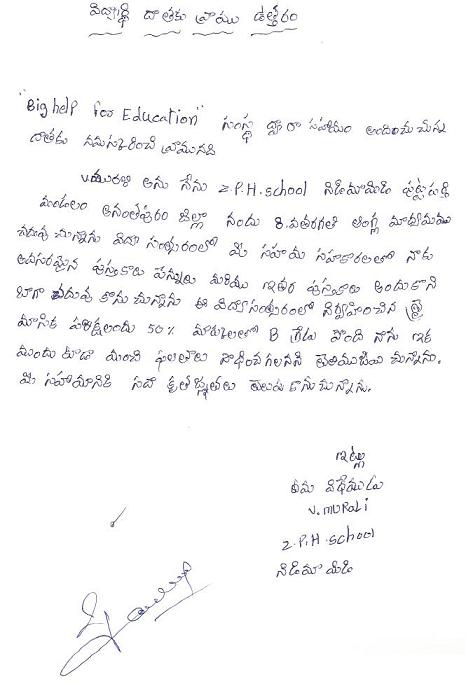 విద్యార్థి దాతకు వ్రాయు ఉత్తరం
"Big help for Education" సంస్థ ద్వారా సహాయం అందించుచున్న
దాతకు నమస్కరించి వ్రాయునది
V.మురళి అను నేను Z.P.H.School నిడిమామిడి పుట్టపర్తి
మండలం అనంతపురం జిల్లా నందు 8.వతరగతి ఆంగ్ల మాధ్యమము
చదువు చున్నాను విద్యా సంత్సరంలో మీ సహాయ సహకారాలతో నాకు
అవసరమైన పుస్తకాలు పెన్నులు మరియు ఇతర పుస్తకాలు అందుకొని
బాగా చదువు కొను చున్నాను ఈ విద్యాసంత్సరంలో నిర్వహించిన త్రై
మాసిక పరీక్షలందు 50% మార్కులతో B గ్రేడు పొంది నాను ఇక
ముందు కూడా మంచి ఫలితాలు సాధించగలనని తెలియజేయు చున్నాను.
మీ సహాయానికి సదా కృతజ్ఞతలు తెలుపు కొనుచున్నాను.
ఇట్లు
తమ విధేయుడు
V.MURALI
Z.P.H.School
నిడిమామిడి